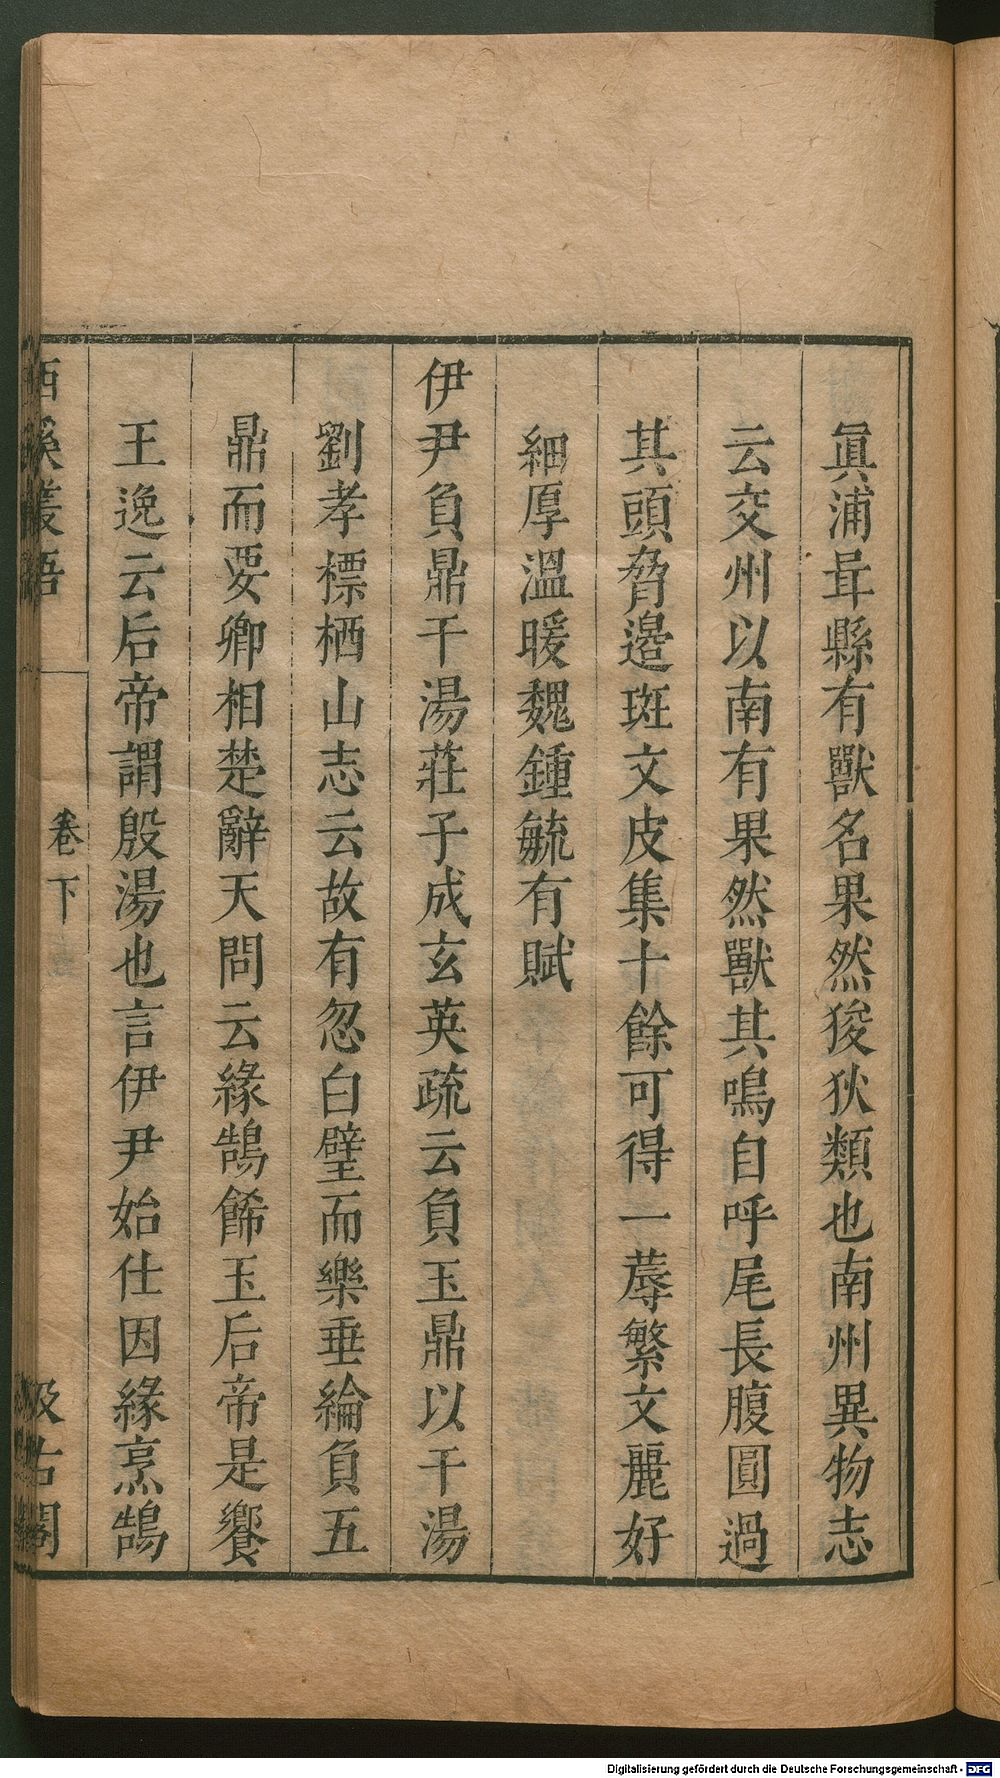 眞浦毦縣有獸名果然狻狄類也南州異物志
云交州以南有果然獸其鳴自呼尾長腹圓過
其頭脅邉斑文皮集十餘可得一蓐繁文麗好
細厚溫暖魏鍾毓有賦
伊尹負鼎干湯莊子成玄英疏云負玉鼎以干湯
劉孝標栖山志云故有忽白璧而樂垂綸負五
鼎而要卿相楚辭天問云緣鵠餙玉后帝是饗
王逸云后帝謂殷湯也言伊尹始仕因緣烹鵠
西溪叢語
卷下
汲古閣
Digitalisierung gefördert durch die Deutsche Forschungsgemeinschaft - DFG